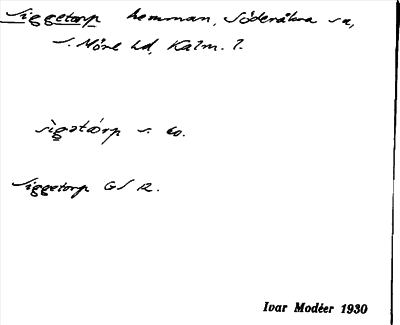 Siggetorp hemman, Söderåkra sn,
S. Möre hd, Kalm. l.
sìgətàrp s. co.
Siggetorp GS 12.
Ivar Modéer 1930